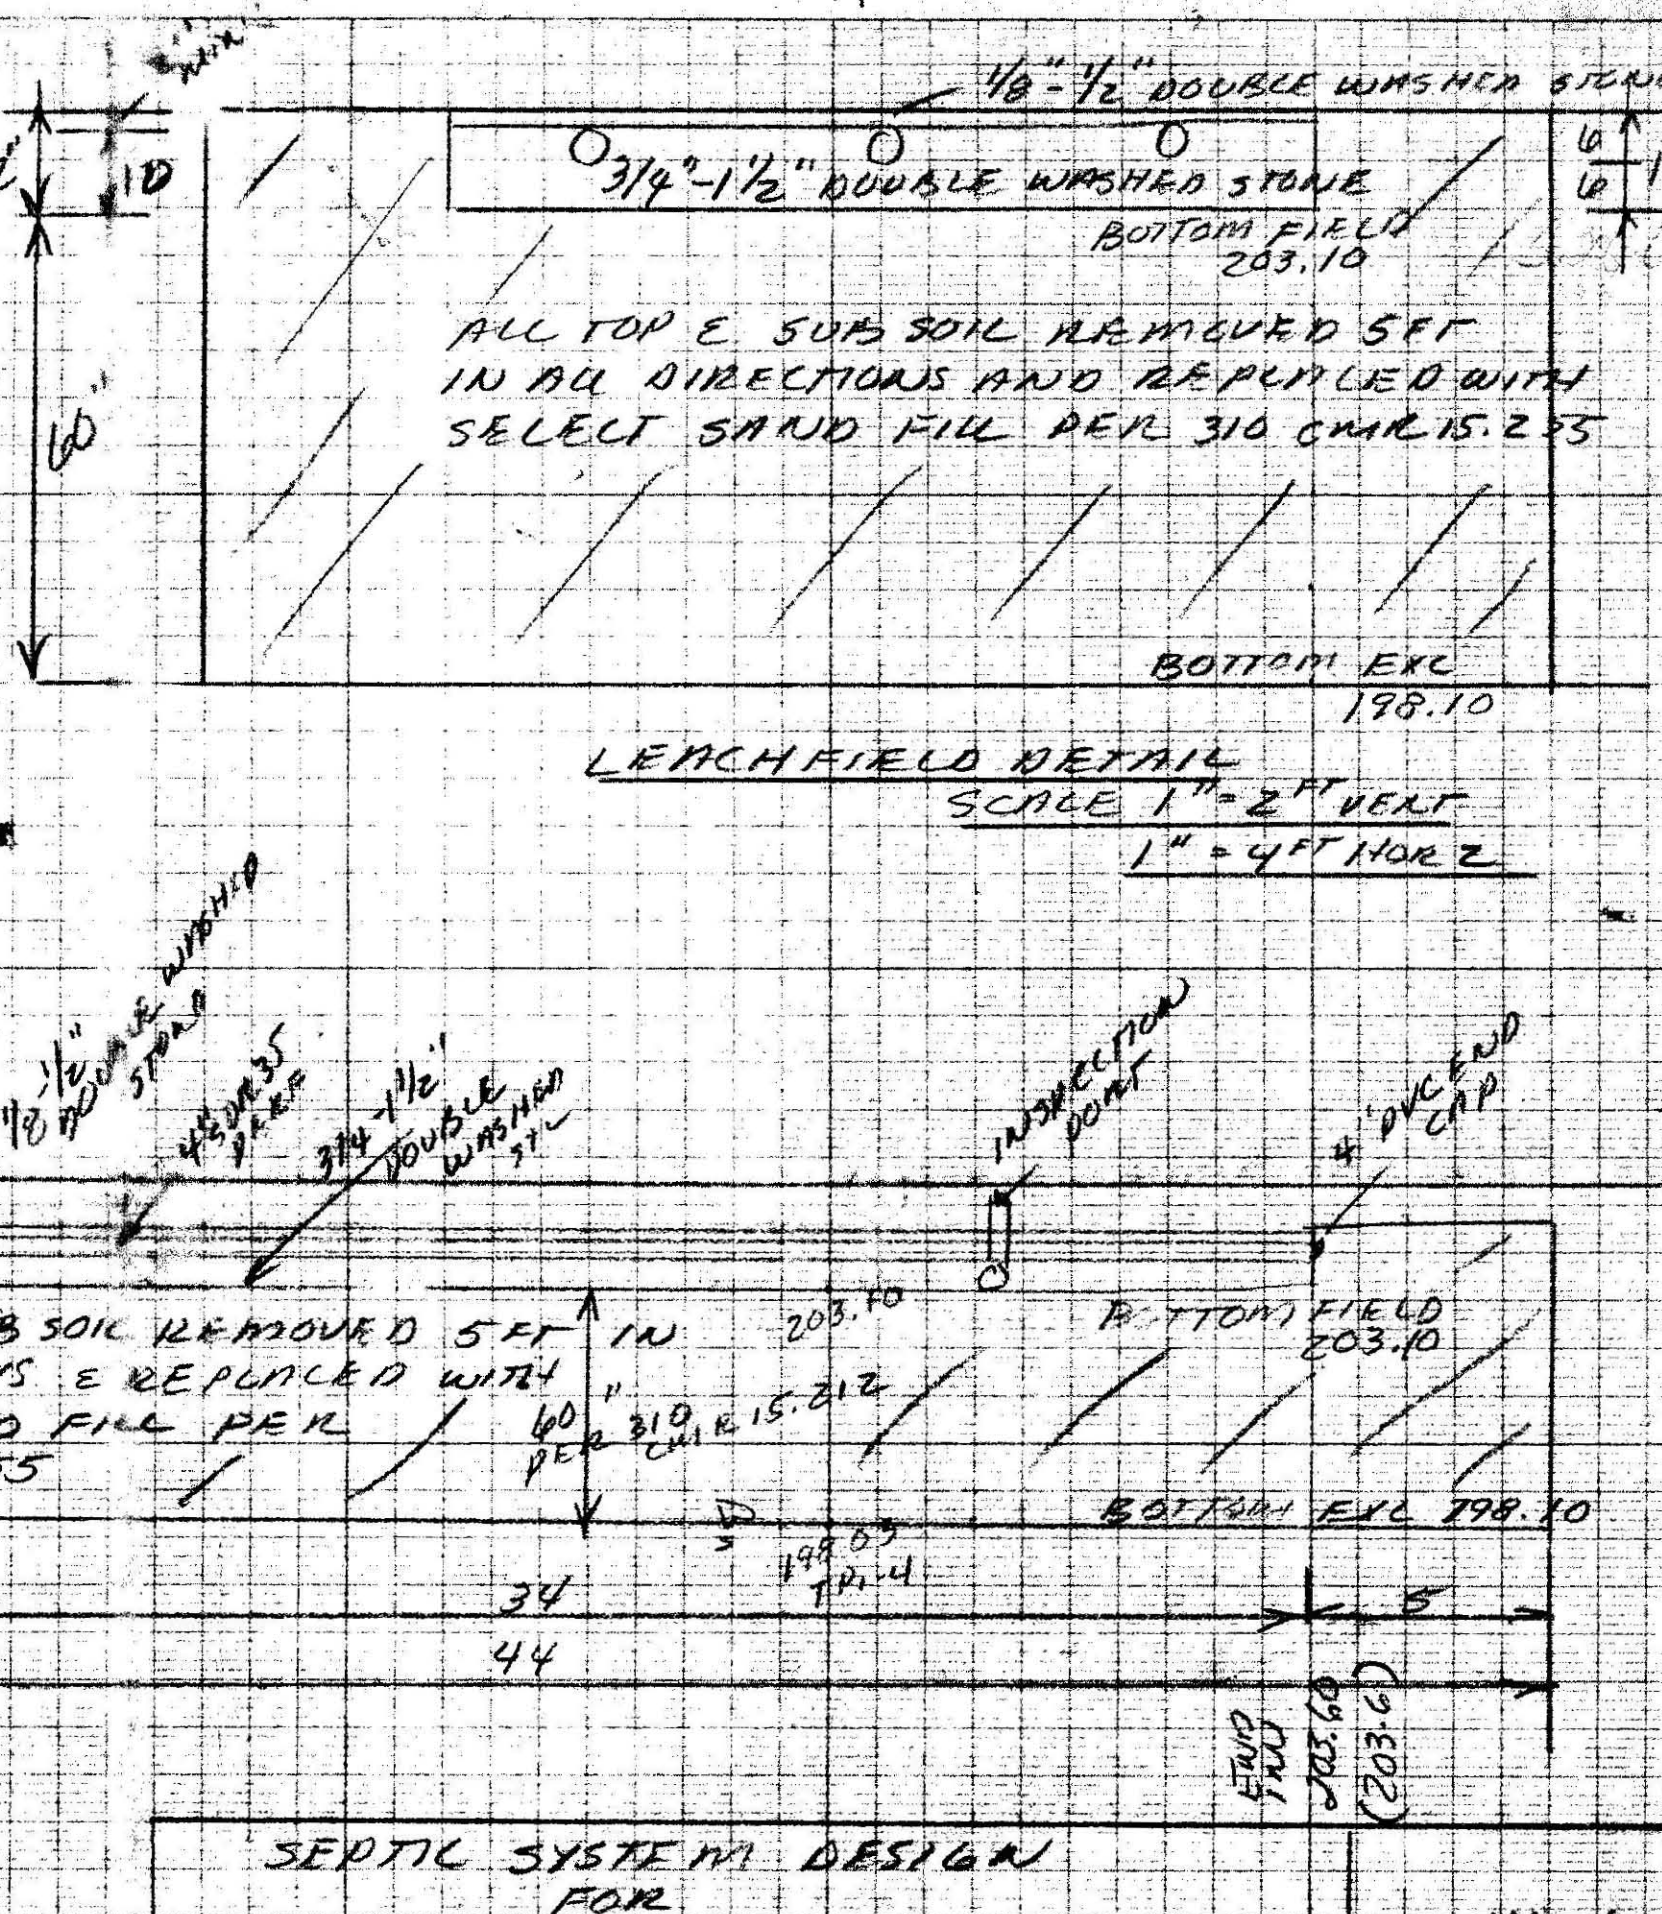 1/8"-1/2" DOUBLE WASHED STONE
10
6
6
3/4"-1 1/2" DOUBLE WASHED STONE
BOTTOM FIELD
203.10
60"
ALL TOP & SUB SOIL REMOVED 5 FT
IN ALL DIRECTIONS AND REPLACED WITH
SELECT SAND FILL PER 310 CMR 15.255
BOTTOM EXC
198.10
LEACHFIELD DETAIL
SCALE 1" = 2 FT VERT
1" = 4 FT HORZ
1/8-1/2"
DOUBLE WASHED
STONE
4" SDR 35
PERF
3/4-1 1/2"
DOUBLE
WASHED
INSPECTION
PORT
4" PVC END
CAP
B SOIL REMOVED 5 FT IN
& REPLACED WITH
FILL PER
55
203.10
BOTTOM FIELD
203.10
60"
PER 310
CMR 15.212
BOTTOM EXC 198.10
198.03
TP-4
34
5
44
END
INV
203.60
(203.6)
SEPTIC SYSTEM DESIGN
FOR